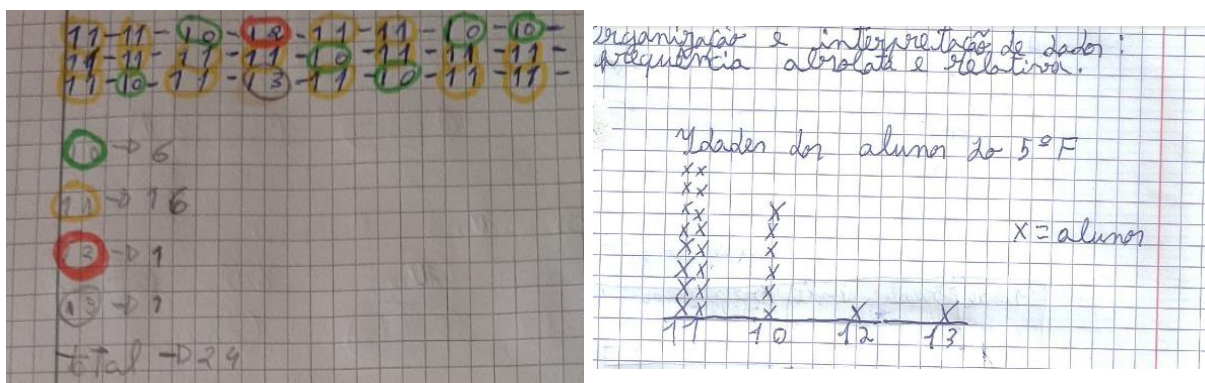 11-11-10-12-11-11-10-10-
11-11-11-11-10-11-11-11-
11-10-11-13-11-10-11-11-
10 → 6
11 → 16
12 → 1
13 → 1
total → 24
organização e interpretação de dados:
frequência absoluta e relativa.
Ydades dos alunos do 5º F
xx
xx
xx x
xx x
xx x
xx x
xx x
xx x x x
x = alunos
11 10 12 13